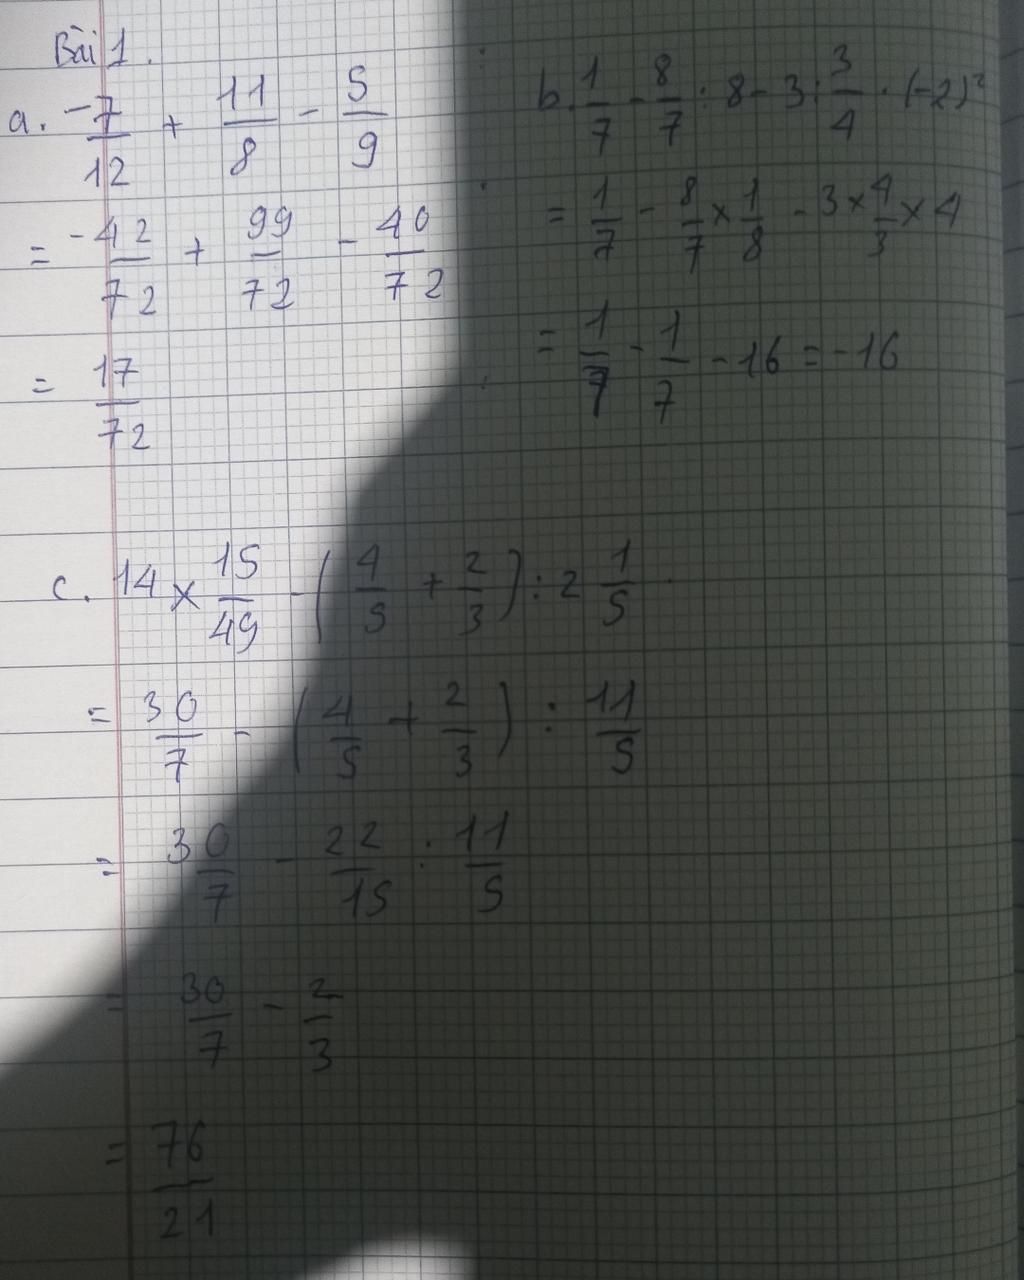 Bài 1.
a. -7/12 + 11/8 - 5/9
= -42/72 + 99/72 - 40/72
= 17/72
b. 1/7 - 8/7 : 8 - 3 : 3/4 . (-2)²
= 1/7 - 8/7 × 1/8 - 3 × 4/3 × 4
= 1/7 - 1/7 - 16 = -16
c. 14 × 15/49 - (4/5 + 2/3) : 2 1/5
= 30/7 - (4/5 + 2/3) : 11/5
= 30/7 - 22/15 : 11/5
= 30/7 - 2/3
= 76/21